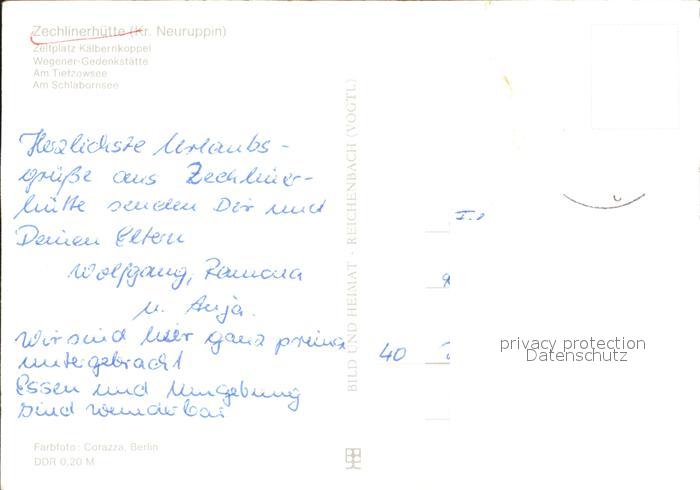 Zechlinerhütte (Kr. Neuruppin)
Zeltplatz Kälbernkoppel
Wegener-Gedenkstätte
Am Tietzowsee
Am Schlabornsee
Herzlichste Urlaubs-
grüße aus Zechliner-
hütte senden Dir und
Deinen Eltern
Wolfgang, Ramona
u. Anja.
Wir sind hier ganz prima
untergebracht
Essen und Umgebung
sind wunderbar
BILD UND HEIMAT · REICHENBACH (VOGTL)
40
privacy protection
Datenschutz
Farbfoto: Corazza, Berlin
DDR 0,20 M